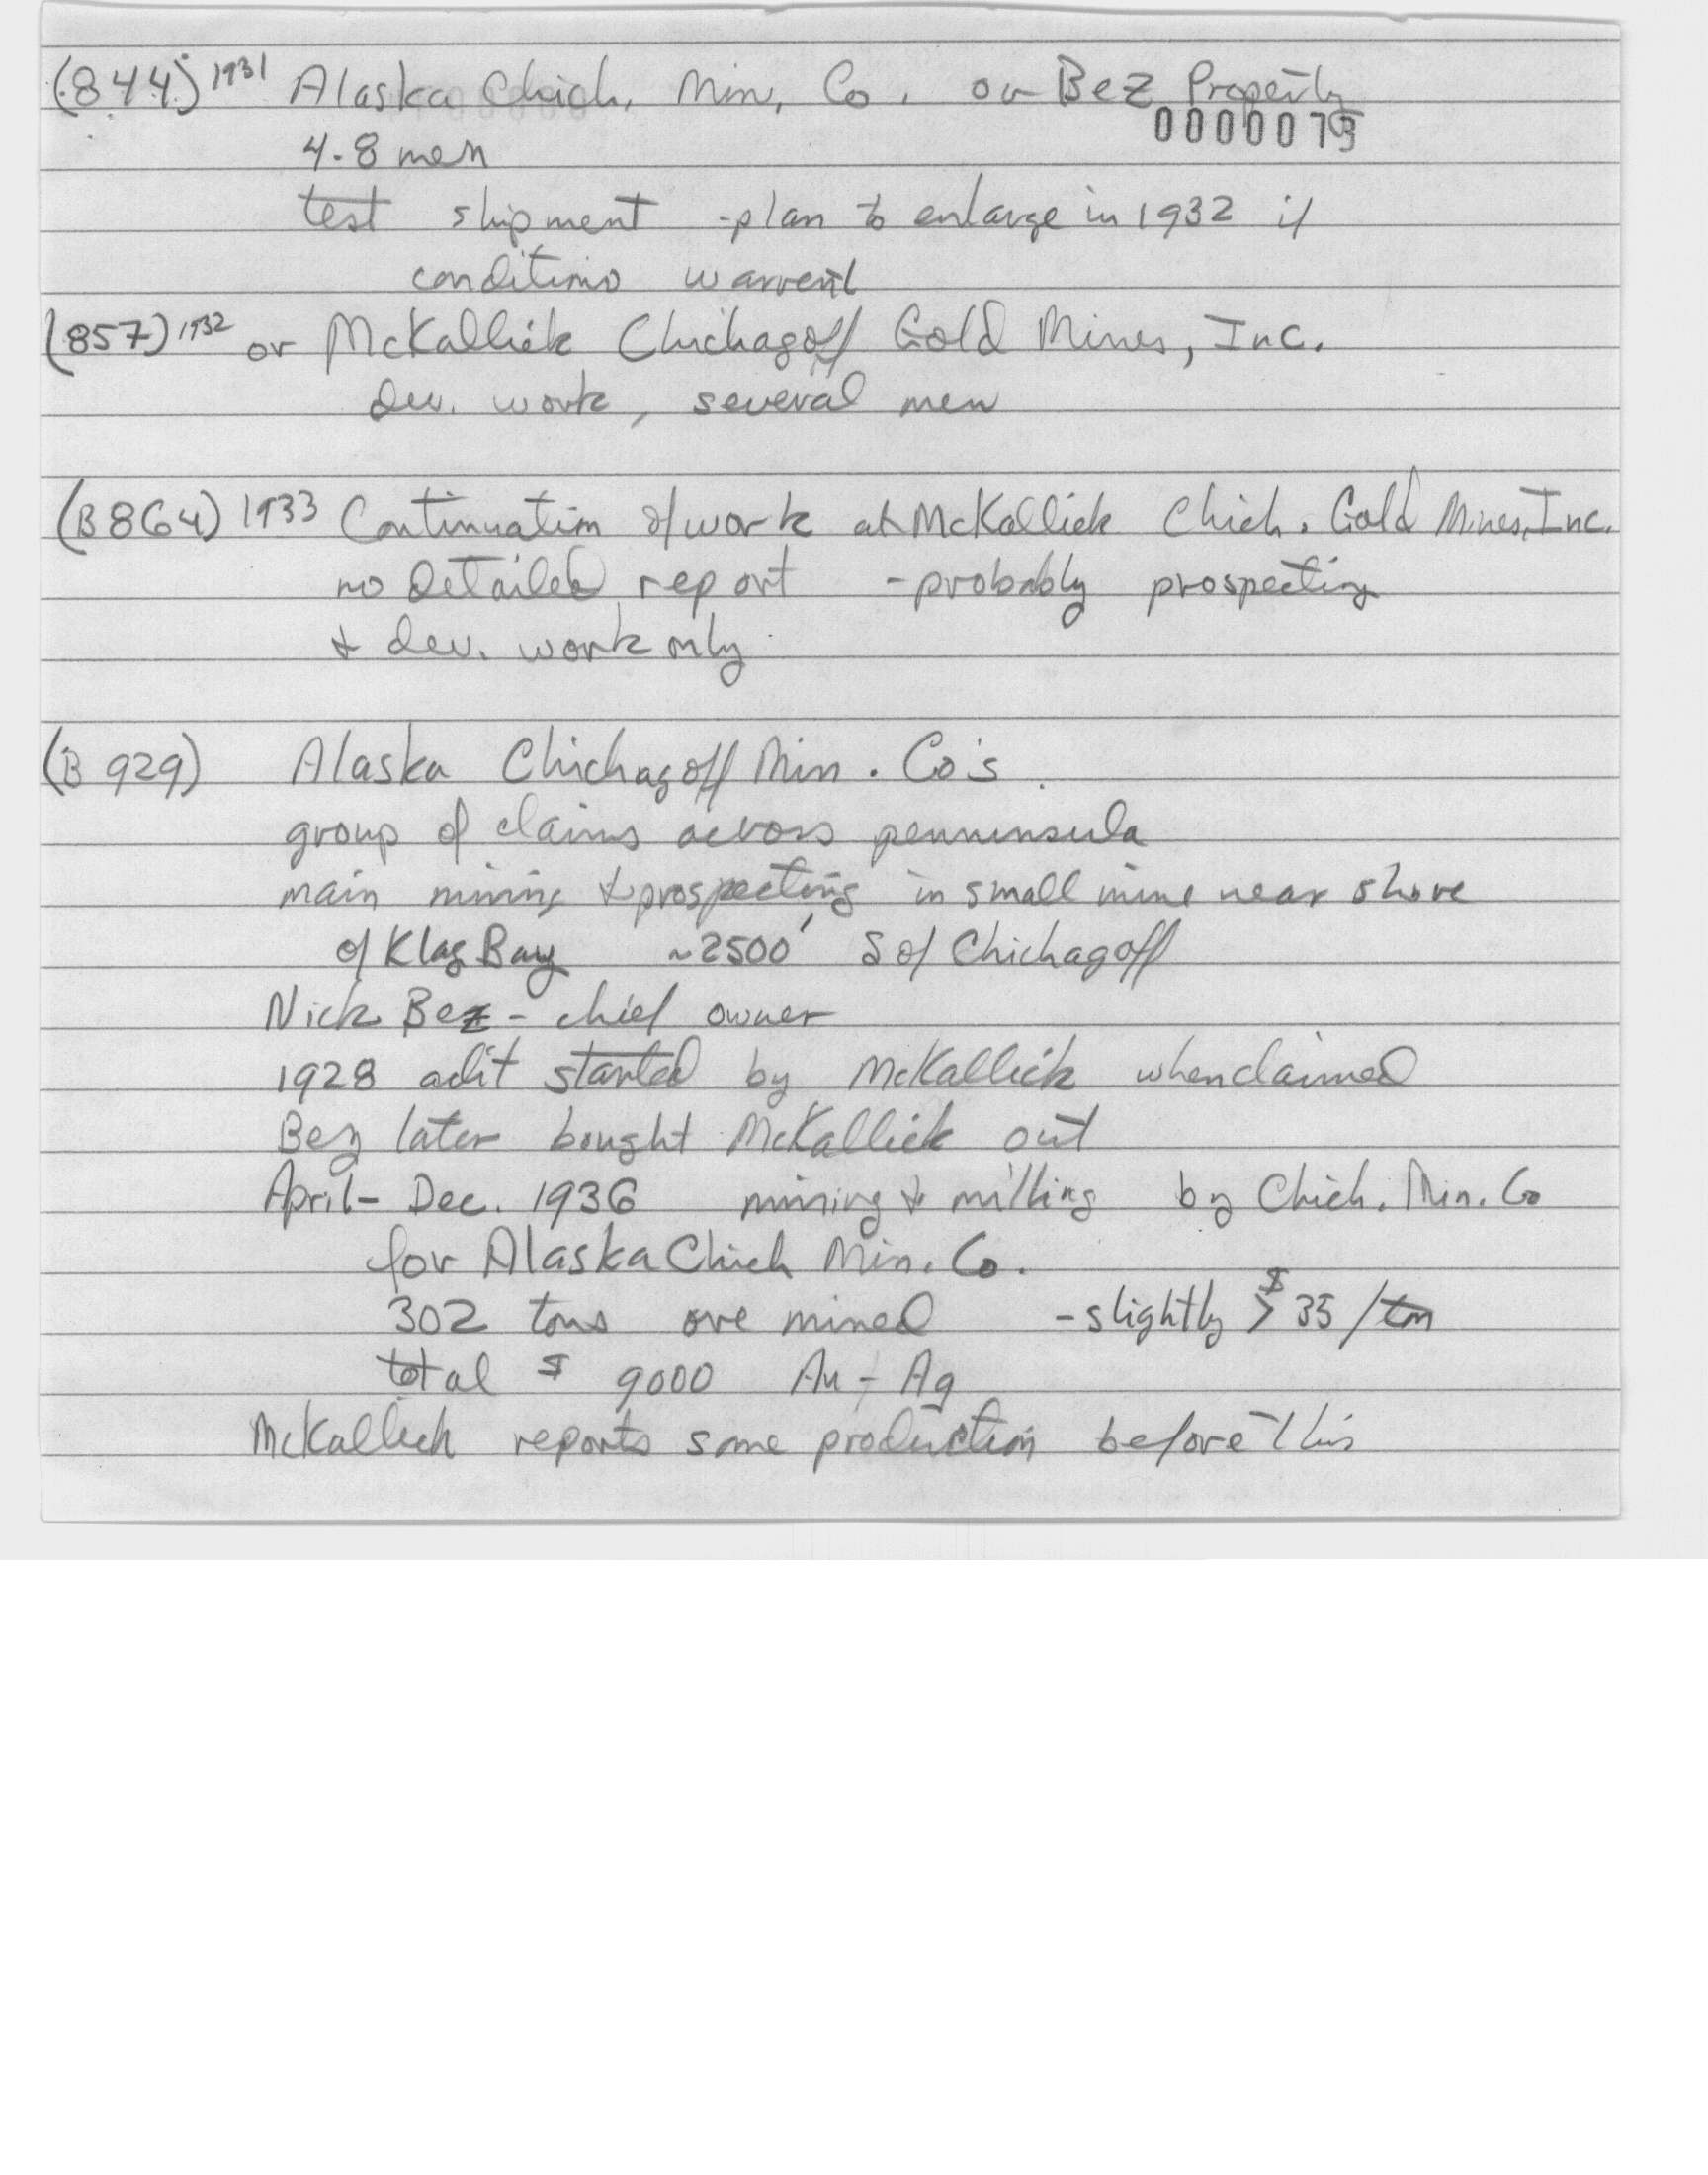 (844) 1931 Alaska Chich. Min. Co. or Bez Property
0000073
4-8 men
test shipment - plan to enlarge in 1932 if
conditions warrent
(857) 1932 or McKallick Chichagoff Gold Mines, Inc.
Dev. work, several men
(B864) 1933 Continuation of work at McKallick Chich. Gold Mines, Inc.
no detailed report - probably prospecting
& dev. work only
(B 929) Alaska Chichagoff Min. Co's.
group of claims across penninsula
main mining & prospecting in small mine near shore
of Klag Bay ~2500' S of Chichagoff
Nick Bez - chief owner
1928 adit started by McKallick when claimed
Bez later bought McKallick out
April - Dec. 1936 mining & milling by Chich. Min. Co
for Alaska Chich Min. Co.
302 tons ore mined - slightly > $35/ton
total $ 9000 Au - Ag
McKallick reports some production before this